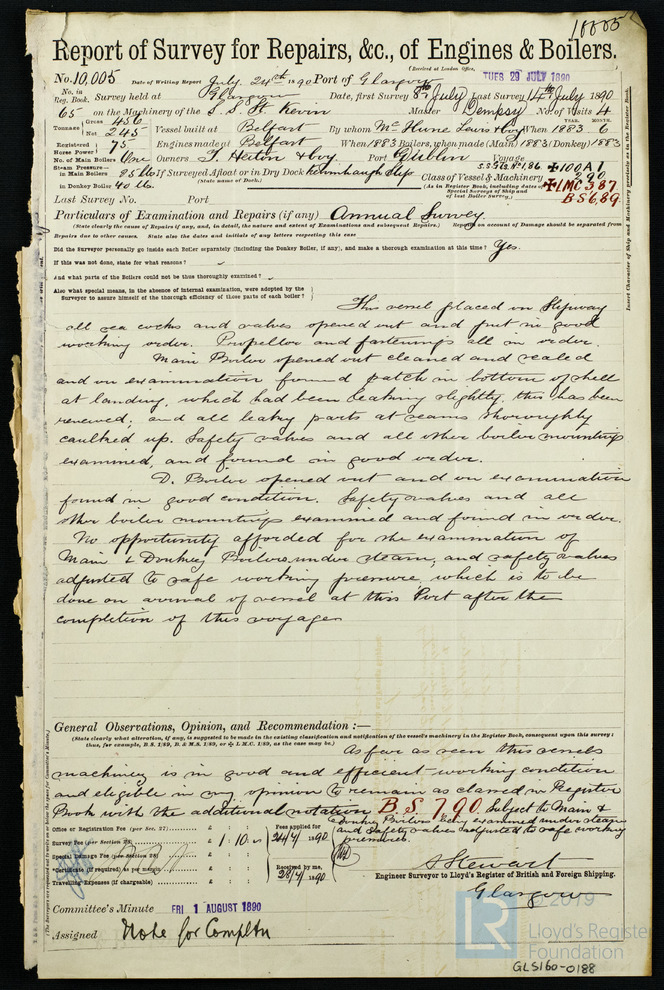 10005
Report of Survey for Repairs, &c., of Engines & Boilers.
(Received at London Office,
No. 10,005 Date of Writing Report July 24th 1890 Port of Glasgow TUES 29 JULY 1890
No. in Reg. Book. Survey held at Glasgow Date, first Survey 8th July Last Survey 14th July 1890
65 on the Machinery of the S. S. St Kevin Master Dempsy No. of Visits 4
Tonnage Gross 450 Net 245 Vessel built at Belfast By whom When 1883 6 YEAR. MONTH.
Registered Horse Power 75 Engines made at Belfast When 1883 Boilers, when made (Main) 1883 (Donkey) 1883
No. of Main Boilers One Owners Port Dublin Voyage
Steam Pressure in Main Boilers 85 lb If Surveyed Afloat or in Dry Dock Kelvinhaugh Slip
(State name of Dock.)
in Donkey Boiler 40 lb. Class of Vessel & Machinery +100A1
(As in Register Book, including dates of Special Surveys of Ship and of last Boiler Survey.) +LMC 3 87
BS 6,89
Last Survey No. Port
Particulars of Examination and Repairs (if any) Annual Survey
(State clearly the cause of Repairs if any, and, in detail, the nature and extent of Examinations and subsequent Repairs.) Repairs on account of Damage should be separated from
Repairs due to other causes. State also the dates and initials of any letters respecting this case
Did the Surveyor personally go inside each Boiler separately (including the Donkey Boiler, if any), and make a thorough examination at this time? Yes.
If this was not done, state for what reasons?
And what parts of the Boilers could not be thoroughly examined?
Also what special means, in the absence of internal examination, were adopted by the
Surveyor to assure himself of the thorough efficiency of those parts of each boiler?
This vessel placed on Slipway
all sea cocks and valves opened out and put in good
working order. Propellor and fastenings all in order.
Main Boiler opened out cleaned and scaled
and on examination found patch in bottom of shell
at landing, which had been leaking slightly, this has been
renewed, and all leaky parts at seams thoroughly
caulked up. Safety valves and all other boiler mountings
examined, and found in good order.
D. Boiler opened out and on examination
found in good condition. Safety valves and all
other boiler mountings examined and found in order.
No opportunity afforded for the examination of
Main & Donkey Boilers under steam, and safety valves
adjusted to safe working pressure, which is to be
done on arrival of vessel at this Port after the
completion of this voyage
General Observations, Opinion, and Recommendation :—
(State clearly what alteration, if any, is suggested to be made in the existing classification and notification of the vessel's machinery in the Register Book, consequent upon this survey;
thus, for example, B.S. 1/89, B. & M.S. 1/89, or + L.M.C. 1/89, as the case may be.)
As far as seen this vessels
machinery is in good and efficient working condition
and eligible in my opinion to remain as classed in Register
Book with the additional notation B S 7,90 Subject to Main &
Donkey Boilers being examined under steam
and safety valves adjusted to safe working
pressures.
Office or Registration Fee (per Sec. 27) £ : :
Survey Fee (per Section 28) £ 1 : 10 : 0
Special Damage Fee (per Section 28) £ : :
*Certificate (if required) as per margin £ : :
Travelling Expenses (if chargeable) £ : :
Fees applied for
24/7/1890
Received by me,
28/7/1890
A Stewart
Engineer Surveyor to Lloyd's Register of British and Foreign Shipping.
Glasgow
Committee's Minute FRI 1 AUGUST 1890
Assigned Note for Compltn
© 2019
LR
Lloyd's Register
Foundation
GLS160-0188
Insert Character of Ship and Machinery precisely as in the Register Book.